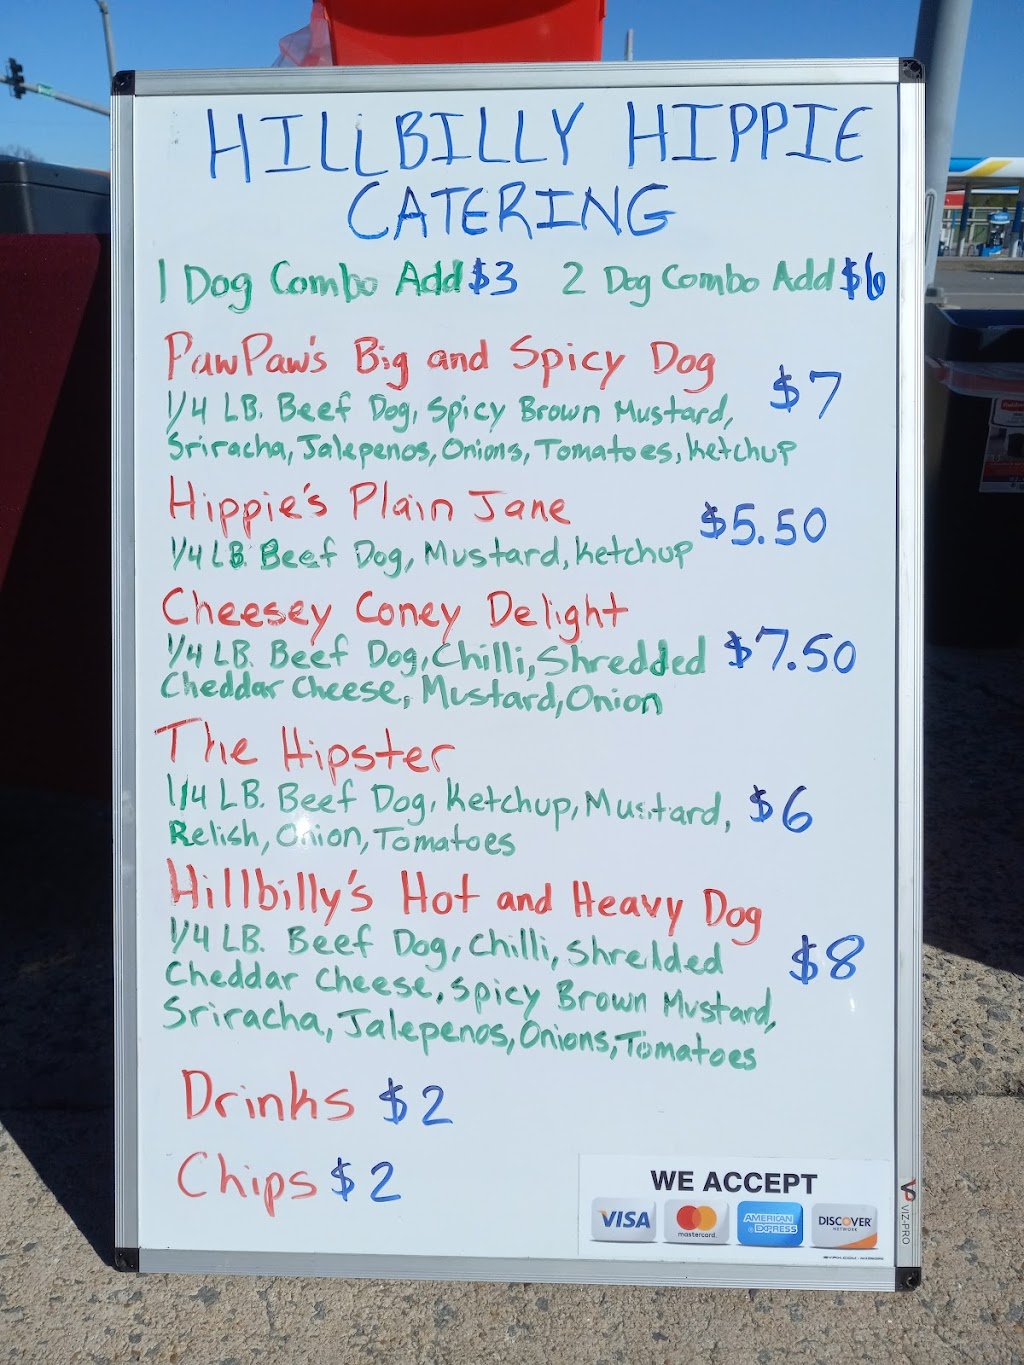 HILLBILLY HIPPIE
CATERING
1 Dog Combo Add $3 2 Dog Combo Add $6
PawPaw's Big and Spicy Dog
$7
1/4 LB. Beef Dog, Spicy Brown Mustard,
Sriracha, Jalepenos, Onions, Tomatoes, Ketchup
Hippie's Plain Jane
$5.50
1/4 LB. Beef Dog, Mustard, Ketchup
Cheesey Coney Delight
1/4 LB. Beef Dog, Chilli, Shredded $7.50
Cheddar Cheese, Mustard, Onion
The Hipster
1/4 LB. Beef Dog, Ketchup, Mustard, $6
Relish, Onion, Tomatoes
Hillbilly's Hot and Heavy Dog
1/4 LB. Beef Dog, Chilli, Shredded $8
Cheddar Cheese, Spicy Brown Mustard,
Sriracha, Jalepenos, Onions, Tomatoes
Drinks $2
Chips $2
WE ACCEPT
VISA mastercard. AMERICAN EXPRESS DISCOVER NETWORK
VIZ-PRO